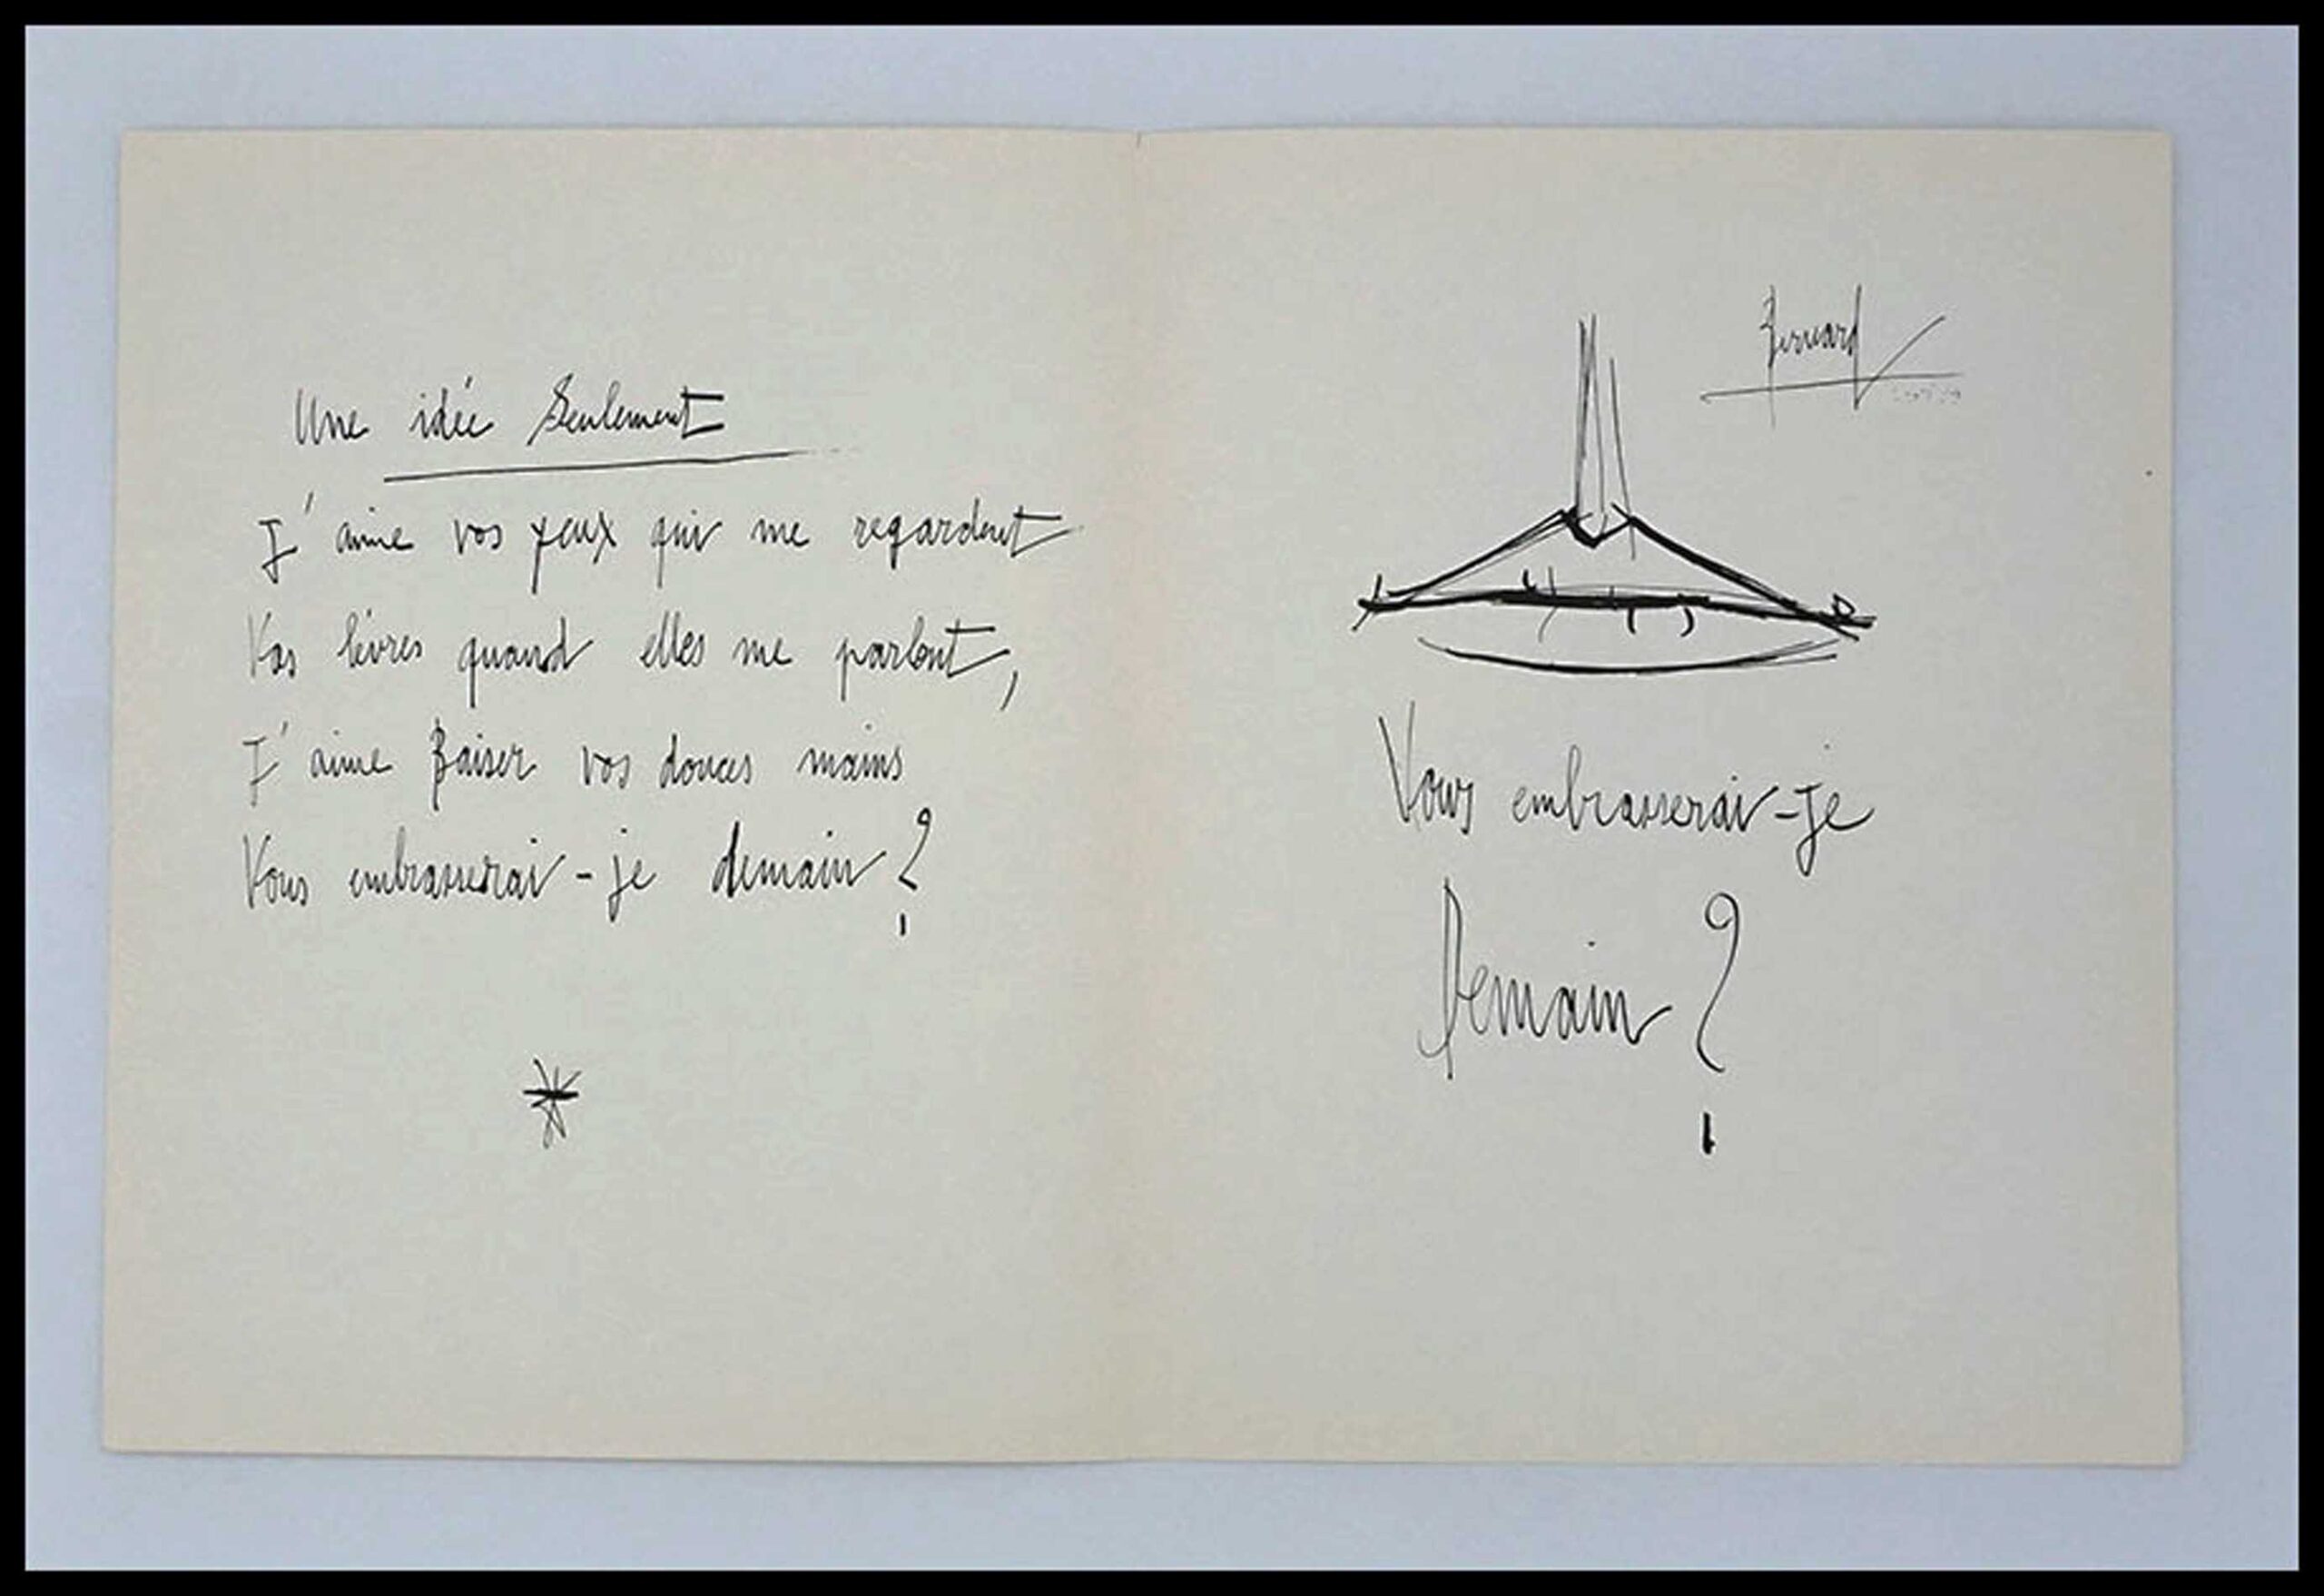 Une idée Seulement
J'aime vos yeux qui me regardent
Vos lèvres quand elles me parlent,
J'aime Baiser vos douces mains
Vous embrasserai-je demain ?
*
Bernard
Vous embrasserai-je
Demain ?